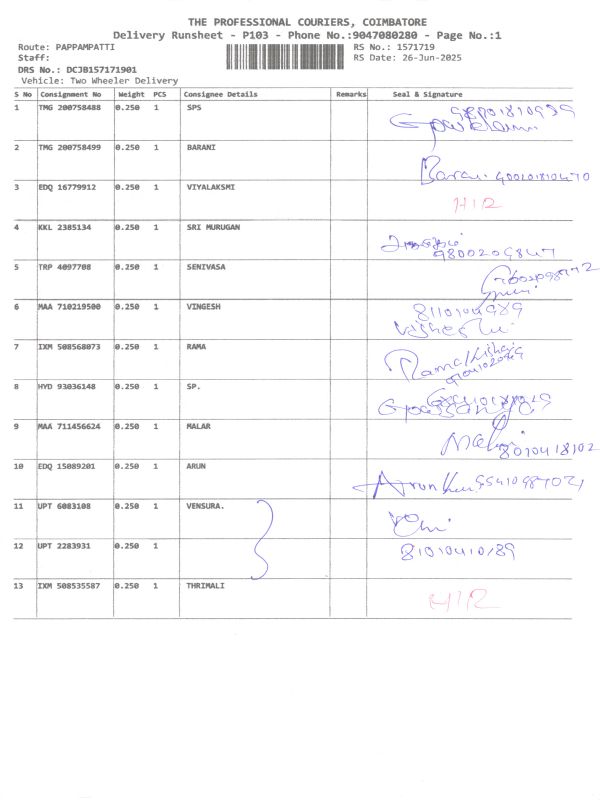 THE PROFESSIONAL COURIERS, COIMBATORE
Delivery Runsheet - P103 - Phone No.:9047080280 - Page No.:1
Route: PAPPAMPATTI RS No.: 1571719
Staff: RS Date: 26-Jun-2025
DRS No.: DCJB157171901
Vehicle: Two Wheeler Delivery
S No Consignment No Weight PCS Consignee Details Remarks Seal & Signature
1 TMG 200758488 0.250 1 SPS
2 TMG 200758499 0.250 1 BARANI Barani
3 EDQ 16779912 0.250 1 VIYALAKSMI H12
4 KKL 2385134 0.250 1 SRI MURUGAN 9800209847
5 TRP 4097708 0.250 1 SENIVASA
6 MAA 710219500 0.250 1 VINGESH
7 IXM 508568073 0.250 1 RAMA
8 HYD 93036148 0.250 1 SP.
9 MAA 711456624 0.250 1 MALAR 8010418102
10 EDQ 15089201 0.250 1 ARUN Arun
11 UPT 6083108 0.250 1 VENSURA.
12 UPT 2283931 0.250 1 81010410189
13 IXM 508535587 0.250 1 THRIMALI H12